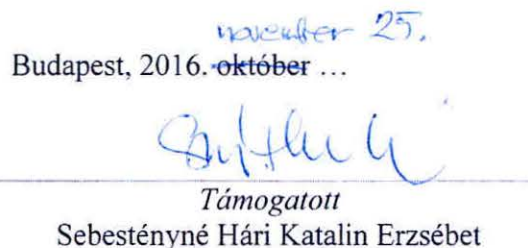 november 25.
Budapest, 2016. október ...
Támogatott
Sebestényné Hári Katalin Erzsébet